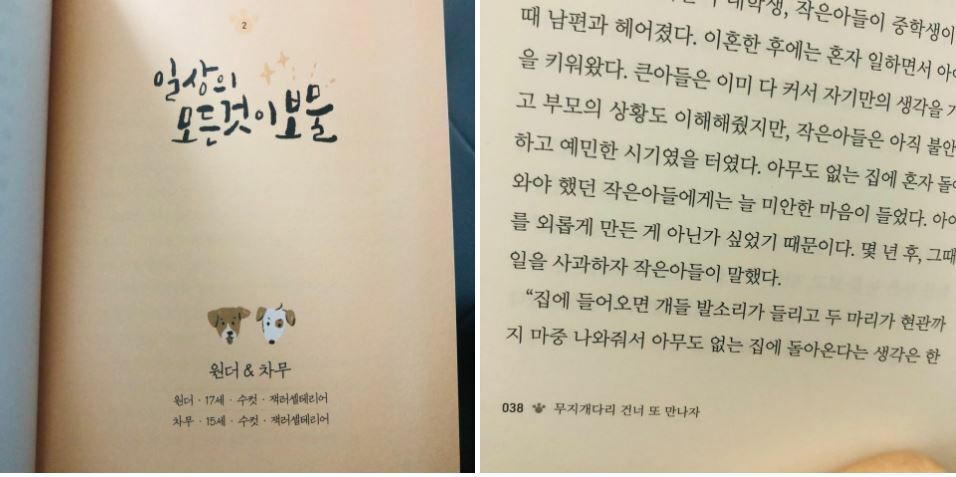 2
일상의
모든것이 보물
원더 & 차무
원더 · 17세 · 수컷 · 잭러셀테리어
차무 · 15세 · 수컷 · 잭러셀테리어
대학생, 작은아들이 중학생이
때 남편과 헤어졌다. 이혼한 후에는 혼자 일하면서 아이
을 키워왔다. 큰아들은 이미 다 커서 자기만의 생각을
고 부모의 상황도 이해해줬지만, 작은아들은 아직 불안
하고 예민한 시기였을 터였다. 아무도 없는 집에 혼자
와야 했던 작은아들에게는 늘 미안한 마음이 들었다.
를 외롭게 만든 게 아닌가 싶었기 때문이다. 몇 년 후, 그때
일을 사과하자 작은아들이 말했다.
“집에 들어오면 개들 발소리가 들리고 두 마리가 현관까
지 마중 나와줘서 아무도 없는 집에 돌아온다는 생각은 한
038 무지개다리 건너 또 만나자